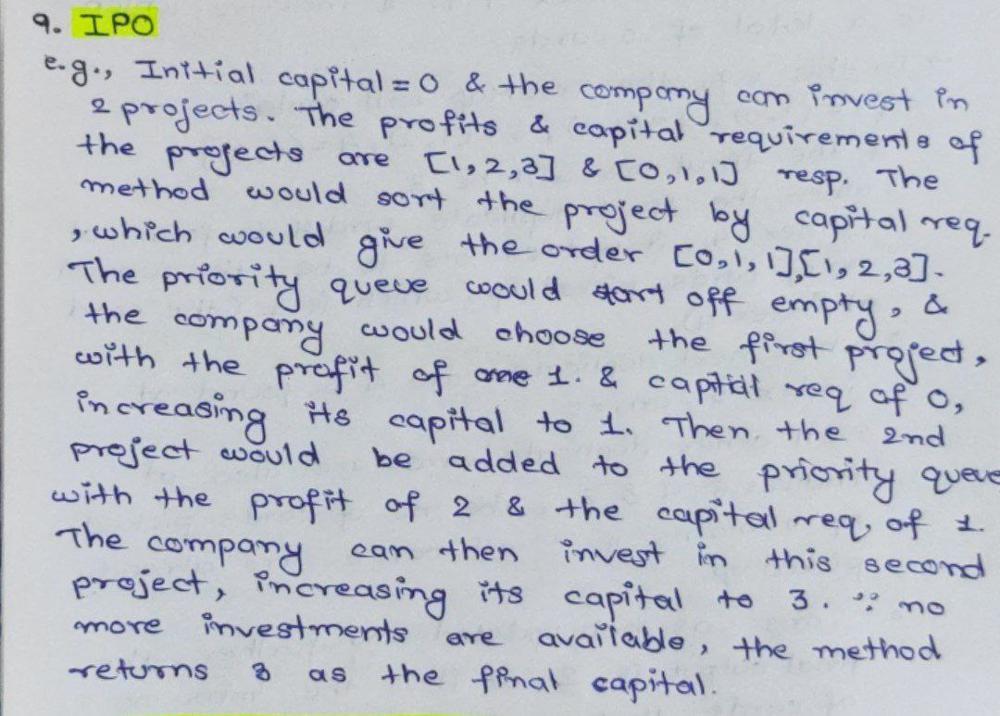 9. IPO
e.g., Initial capital = 0 & the company can invest in
2 projects. The profits & capital requirements of
the projects are [1,2,3] & [0,1,1] resp. The
method would sort the project by capital req.
, which would give the order [0,1,1],[1,2,3].
The priority queue would start off empty, &
the company would choose the first project,
with the profit of one 1. & capital req of 0,
increasing its capital to 1. Then, the 2nd
project would be added to the priority queue
with the profit of 2 & the capital req, of 1.
The company can then invest in this second
project, increasing its capital to 3. ∵ no
more investments are available, the method
returns 3 as the final capital.